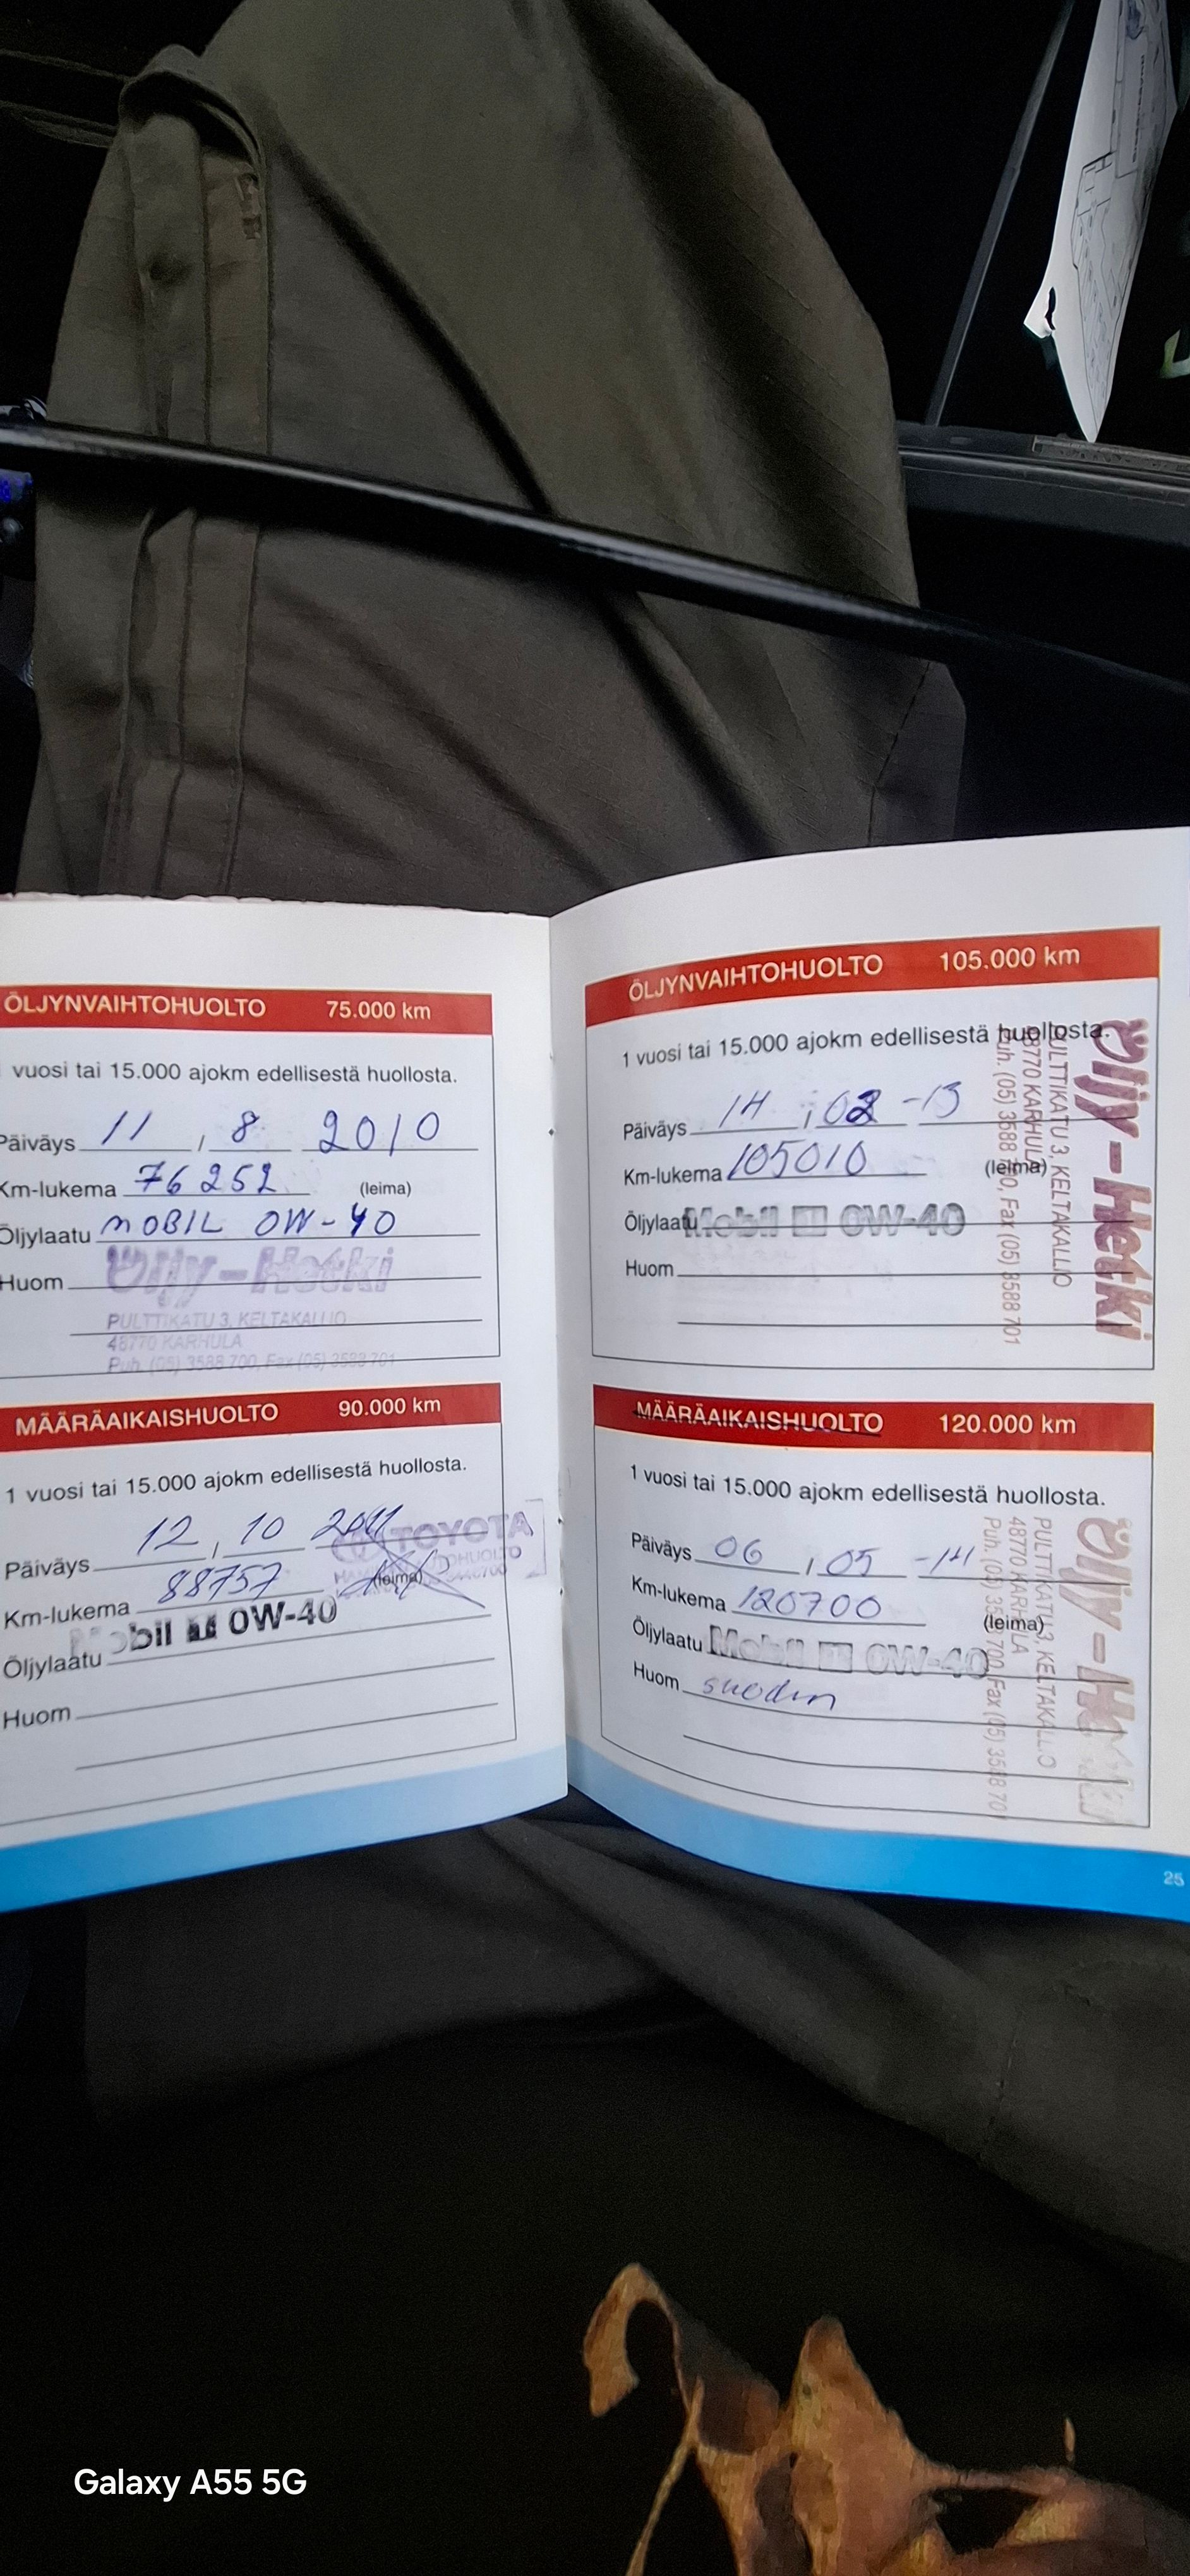 ÖLJYNVAIHTOHUOLTO 75.000 km
vuosi tai 15.000 ajokm edellisestä huollosta.
Päiväys 11 / 8 2010
Km-lukema 76252 (leima)
Öljylaatu MOBIL 0W-40
Huom
Öljy-Hetki
PULTTIKATU 3, KELTAKALLIO
48770 KARHULA
Puh. (05) 3588 700, Fax (05) 3588 701
MÄÄRÄAIKAISHUOLTO 90.000 km
1 vuosi tai 15.000 ajokm edellisestä huollosta.
Päiväys 12, 10 2011
TOYOTA
Km-lukema 88757 (leima)
Öljylaatu Mobil 1 0W-40
Huom
ÖLJYNVAIHTOHUOLTO 105.000 km
1 vuosi tai 15.000 ajokm edellisestä huollosta.
Päiväys 14 / 02 -13
Km-lukema 105010 (leima)
Öljylaatu Mobil 1 0W-40
Huom
Öljy-Hetki
PULTTIKATU 3, KELTAKALLIO
48770 KARHULA
Puh. (05) 3588 700, Fax (05) 3588 701
MÄÄRÄAIKAISHUOLTO 120.000 km
1 vuosi tai 15.000 ajokm edellisestä huollosta.
Päiväys 06 / 05 -14
Km-lukema 120700 (leima)
Öljylaatu Mobil 1 0W-40
Huom suodin
Öljy-Hetki
PULTTIKATU 3, KELTAKALLIO
48770 KARHULA
Puh. (05) 3588 700, Fax (05) 3588 70
25
Galaxy A55 5G